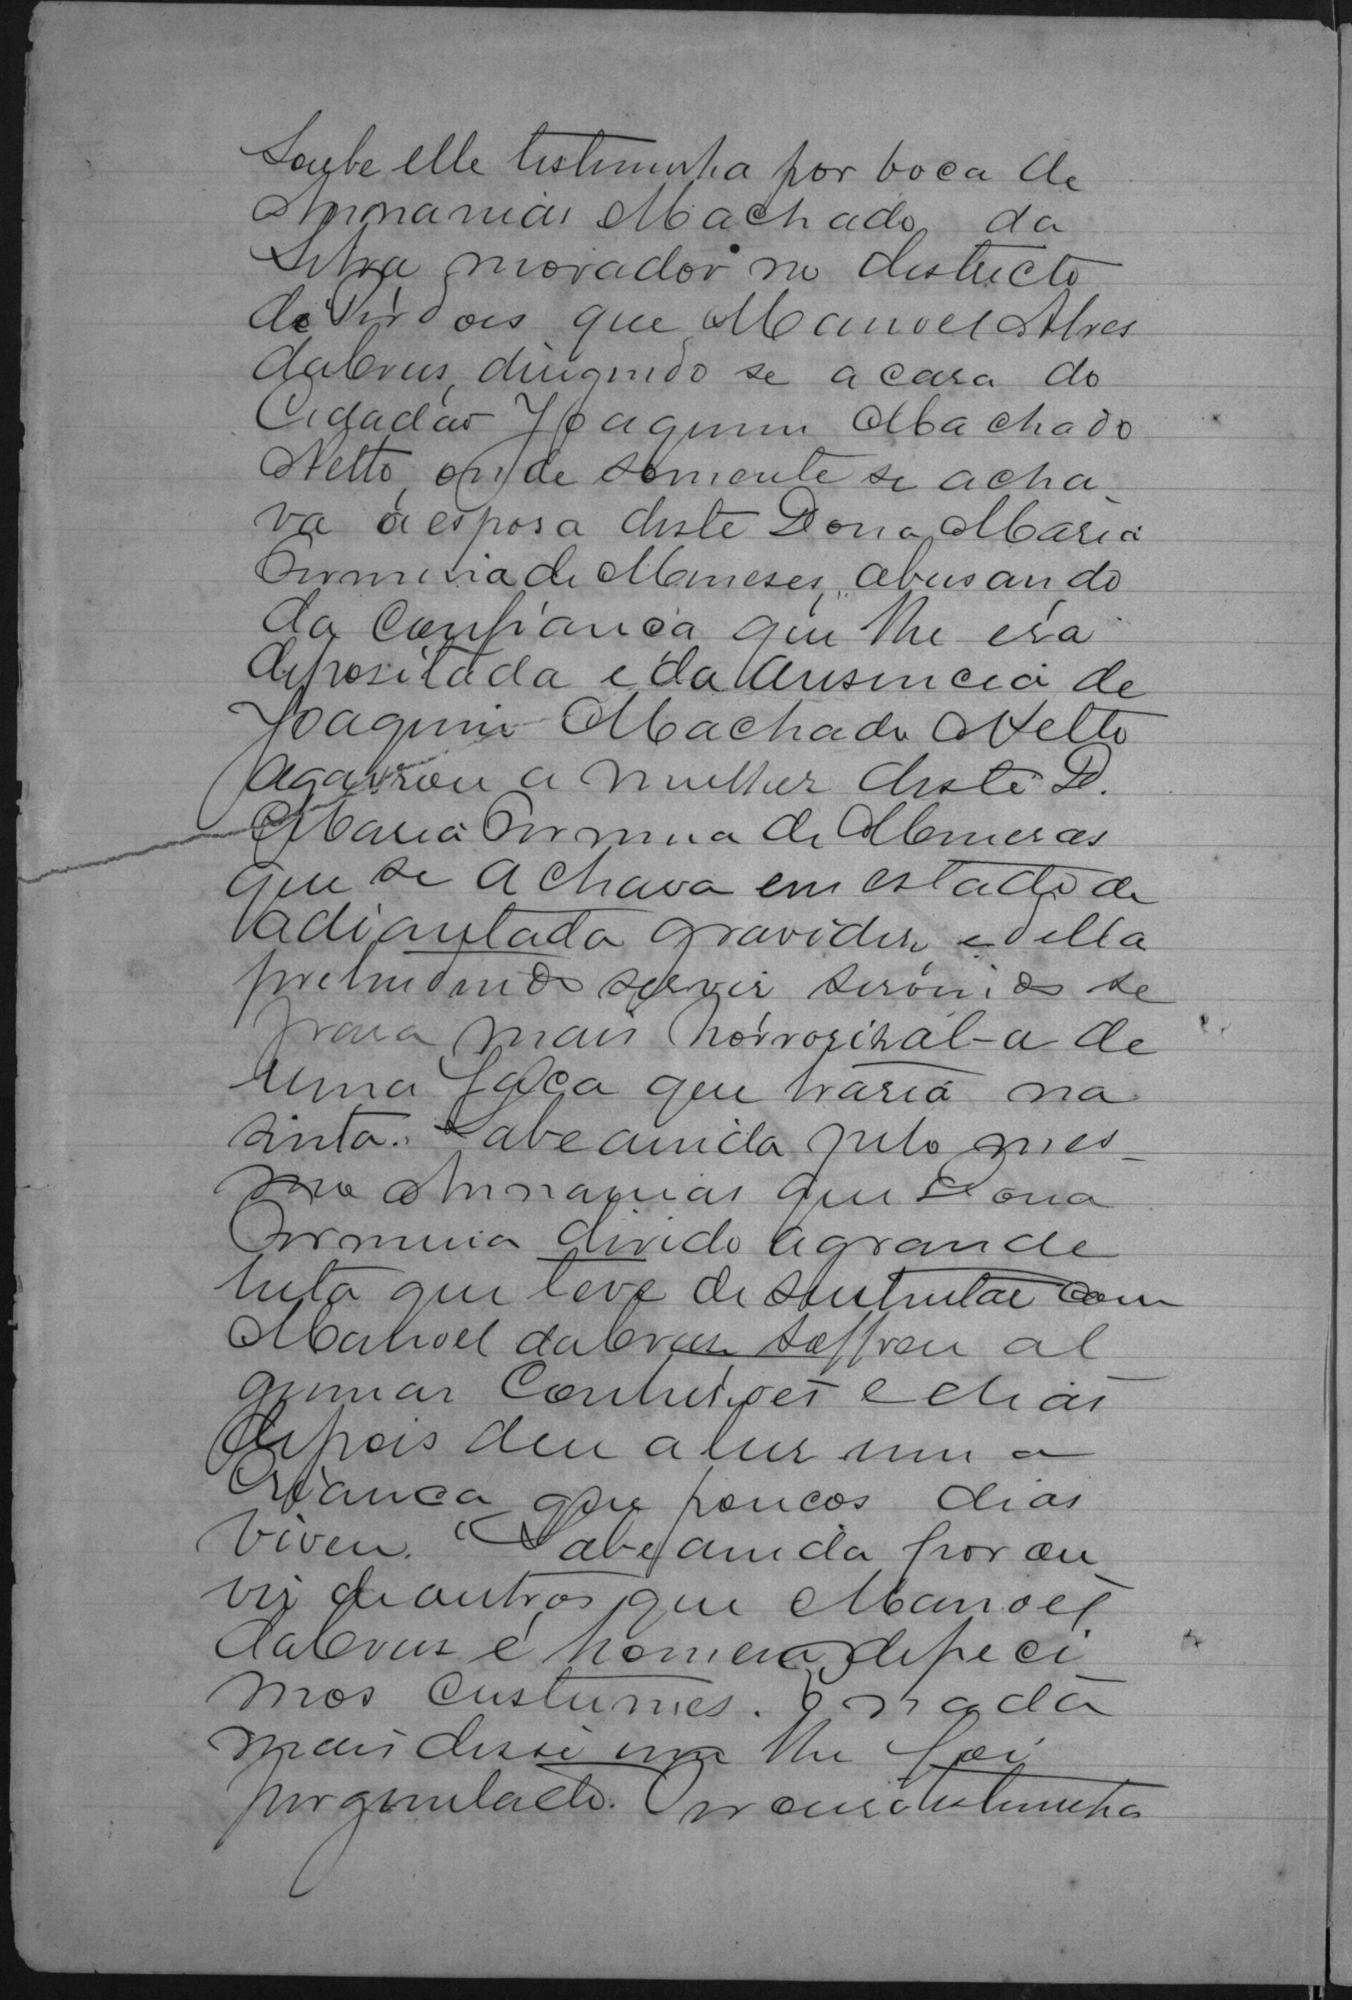 Soube elle testimunha por boca de
Annanias Machado da
Silva morador no destricto
de Pirdões que Manoel Alves
da Crus, dirigindo se a casa do
Cidadão Joaquim Machado
Netto, onde somente se acha
va a esposa deste Dona Maria
Firminia de Meneses, abusando
da confiança que lhe era
depositada e da ausencia de
Joaquim Machado Netto
agarrou a mulher deste D.
Maria Firminia de Meneses
que se achava em estado de
adiantada gravides, e della
pretendendo servir servindo se
para mais horrorisal-a de
uma faca que trasia na
sinta. Sabe ainda pelo mes_
mo Annanias que Dona
Firminia divido a grande
luta que teve de sustentar com
Manoel da Crus soffreu al
gumas Contusões e dias
depois deu a lus uma
criança que poucos dias
viveu. Sabe ainda por ou
vir de outros que Manoel
da Crus é homem de peci
mos custumes. E nada
mais disse nem lhe foi
perguntado. testimunha